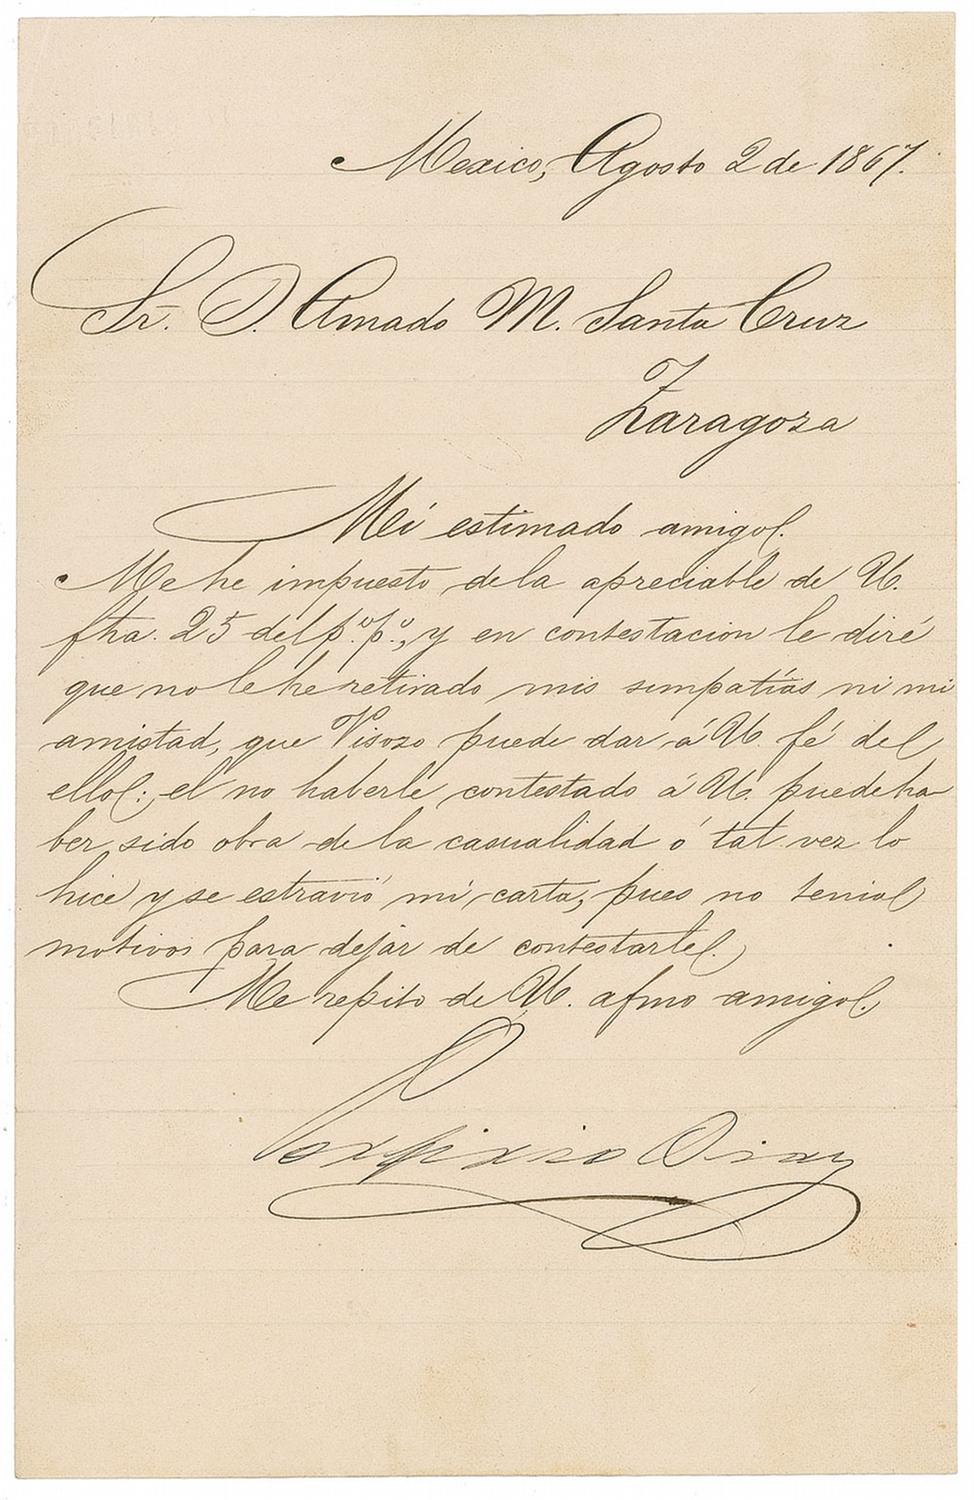 Mexico, Agosto 2 de 1867.
Sr. D. Amado M. Santa Cruz
Zaragoza
Mi estimado amigo.
Me he impuesto de la apreciable de U.
fha. 25 del p.º p.º, y en contestacion le diré
que no le he retirado mis simpatías ni mi
amistad, que Visoso puede dar á U. fé de
ello: el no haberle contestado á U. puede ha
ber sido obra de la casualidad ó tal vez lo
hice y se estravió mi carta; pues no tenia
motivos para dejar de contestarle.
Me repito de U. afmo amigo.
Porfirio Diaz